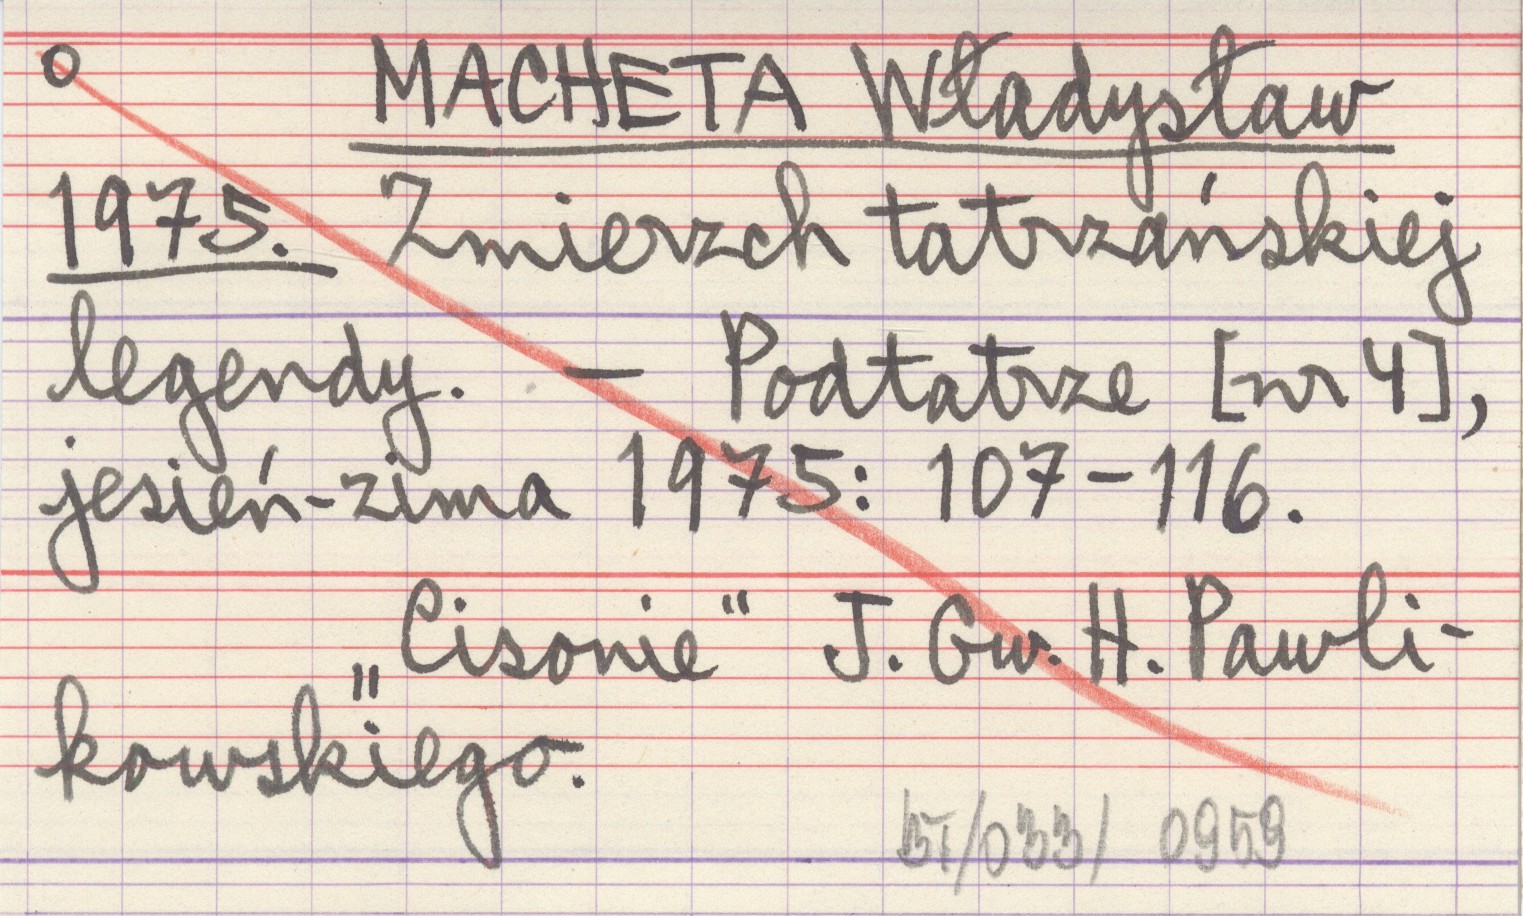 MACHETA Władysław
1975. Zmierzch tatrzańskiej
legendy. — Podtatrze [nr 4],
jesień-zima 1975: 107-116.
„Cisonie" J. Gw. H. Pawli-
kowskiego.
/033/ 0959